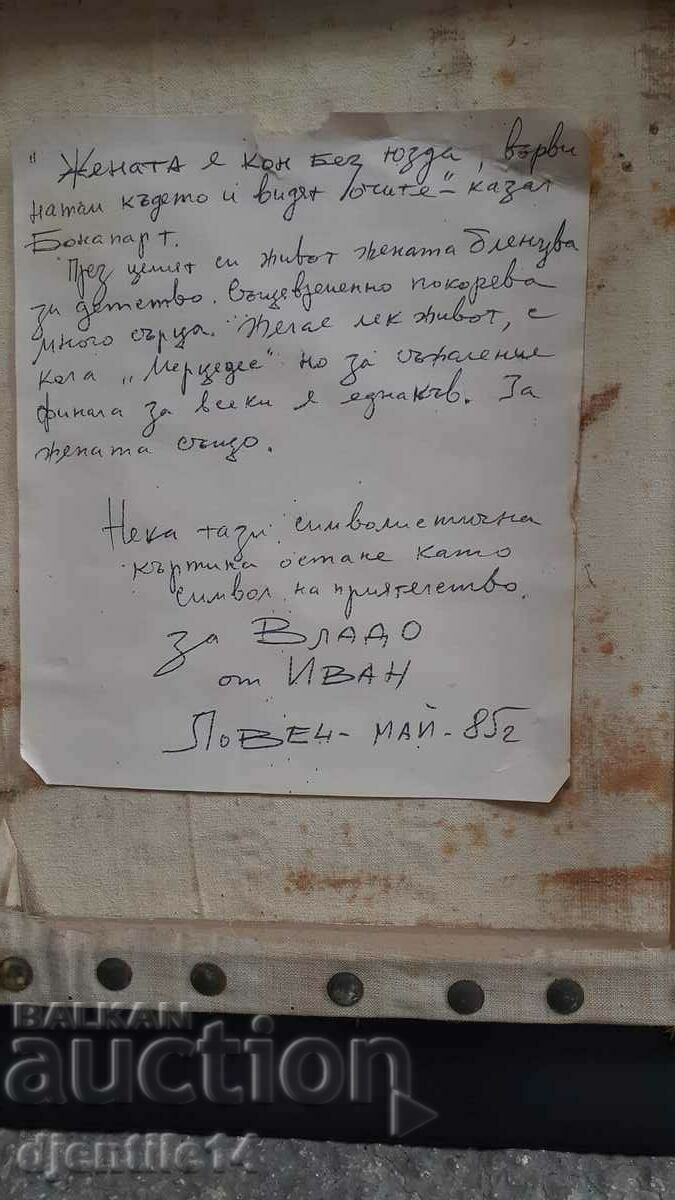 "Жената е кон без юзда, върви
натам където и видят очите" - казал
Бонапарт.
През целият си живот жената бленува
за детство. Същевременно покорева
много сърца. Желае лек живот, с
кола „Мерцедес" но за съжаление
финала за всеки е еднакъв. За
жената също.
Нека тази символистична
картина остане като
символ на приятелство.
за Владо
от ИВАН
ЛОВЕЧ - МАЙ - 85г
BALKAN
auction
djentile14